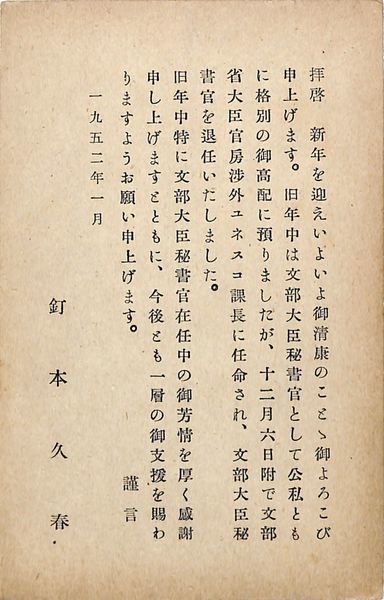 拝啓　新年を迎えいよいよ御清康のことゝ御よろこび
申上げます。旧年中は文部大臣秘書官として公私とも
に格別の御高配に預りましたが、十二月六日附で文部
省大臣官房渉外ユネスコ課長に任命され、文部大臣秘
書官を退任いたしました。
旧年中特に文部大臣秘書官在任中の御芳情を厚く感謝
申し上げますとともに、今後とも一層の御支援を賜わ
りますようお願い申上げます。
謹言
一九五二年一月
釘本久春